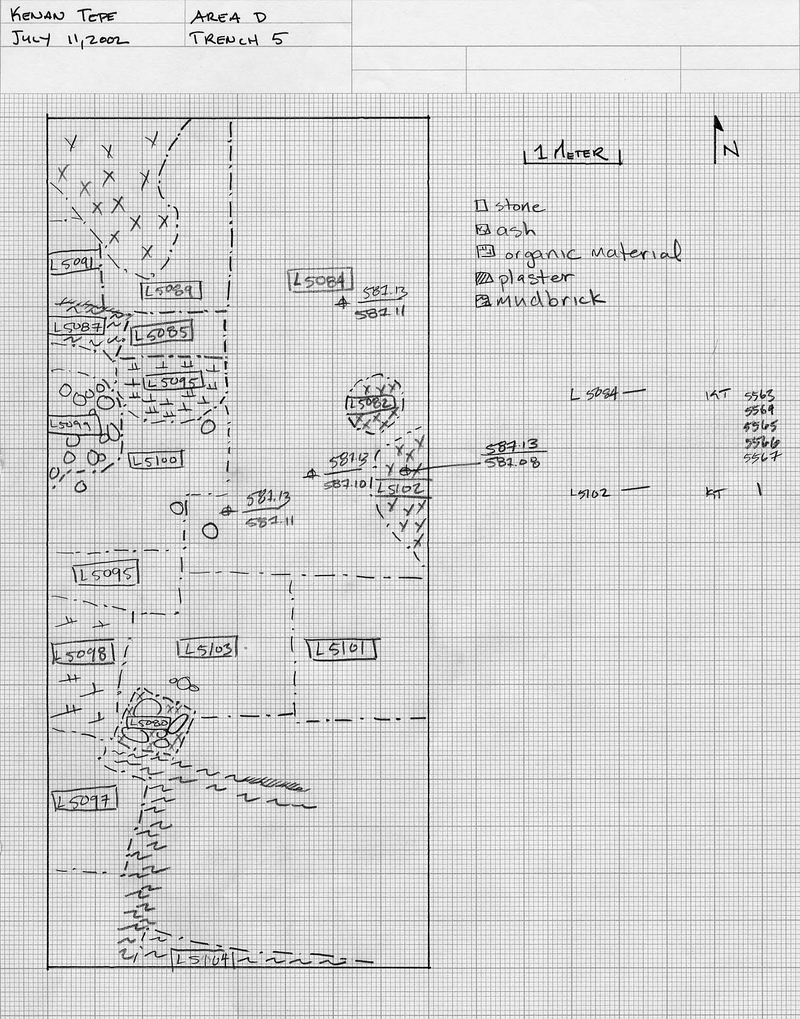 KENAN TEPE
JULY 11, 2002
AREA D
TRENCH 5
1 METER
N
stone
ash
organic material
plaster
mudbrick
L5091
L5089
L5084
587.13
587.11
L5087
L5085
L5095
L5082
L5099
L5100
587.13
587.10
L5102
587.13
587.08
587.13
587.11
L5084 — KT 5563
5564
5565
5566
5567
L5102 — KT 1
L5095
L5098
L5103
L5101
L5080
L5097
L5104